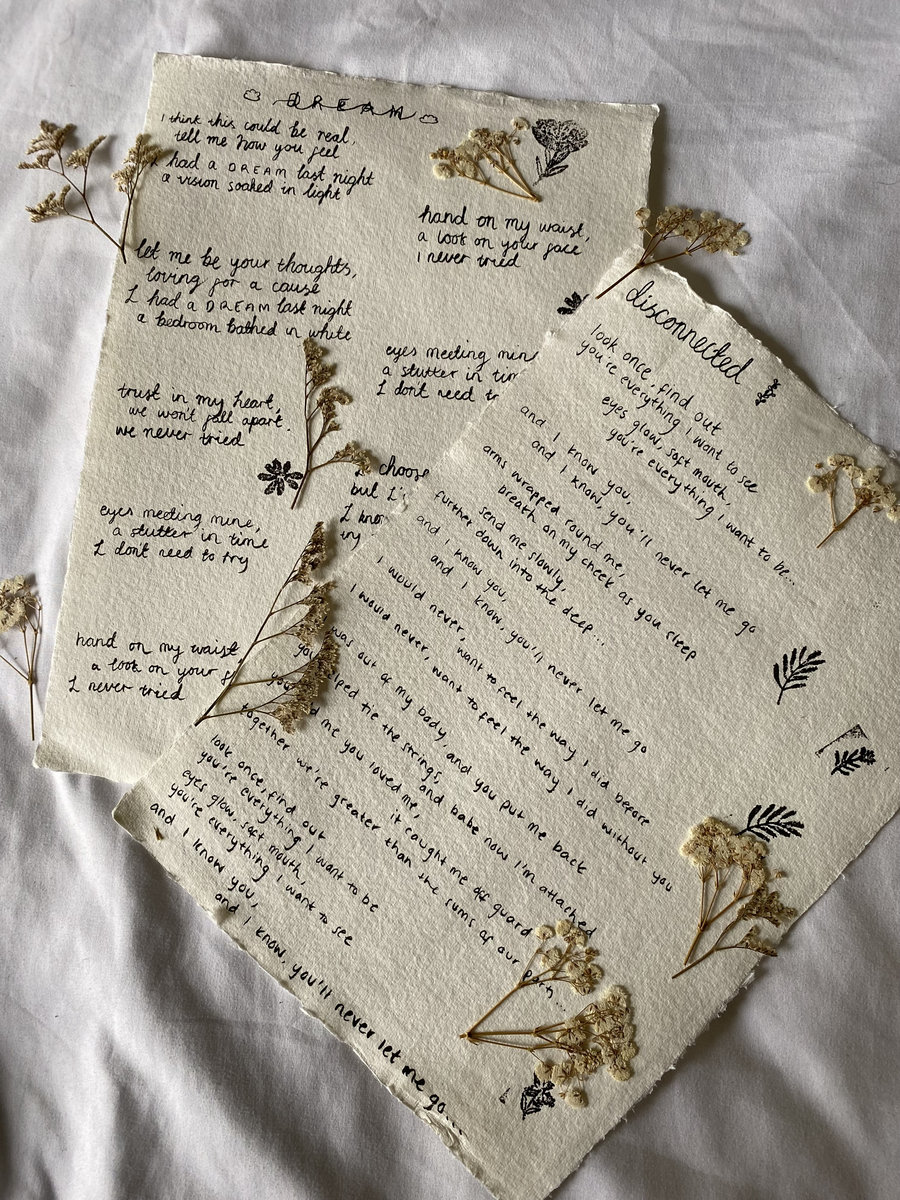 DREAM
I think this could be real,
tell me how you feel
I had a DREAM last night
a vision soaked in light
let me be your thoughts,
loving for a cause
I had a DREAM last night
a bedroom bathed in white
trust in my heart,
we won't fall apart.
we never tried
eyes meeting mine,
a stutter in time
I don't need to try
hand on my waist
a look on your f
I never tried
hand on my waist,
a look on your face
I never tried
eyes meeting mine
a stutter in tim
I don't need tr
I choose
but I'
I know
disconnected
look once, find out
you're everything I want to see
eyes glow, soft mouth,
you're everything I want to be...
and I know you,
and I know, you'll never let me go
arms wrapped round me,
breath on my cheek as you sleep
send me slowly,
further down into the deep...
and I know you,
and I know, you'll never let me go
I would never, want to feel the way I did before
I would never, want to feel the way I did without you
was out of my body, and you put me back
you helped tie the strings, and babe now I'm attached
me you loved me, it caught me off guard
together we're greater than the sums of our parts...
look once, find out
you're everything I want to be
eyes glow, soft mouth,
you're everything I want to see
and I know you,
and I know, you'll never let me go...